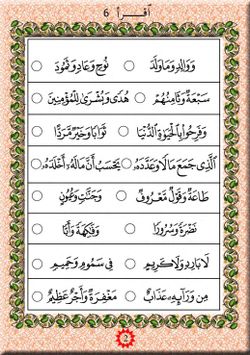 أقرأ 6
وَوَالِدٍ وَمَا وَلَدَ ○ نُوحٍ وَعَادٍ وَثَمُودَ ○
سَبْعَةٌ وَثَامِنُهُمْ ○ هُدًى وَبُشْرَى لِلْمُؤْمِنِينَ ○
وَفَرِحُوا۟ بِالْحَيَوٰةِ الدُّنْيَا ○ ثَوَابًا وَخَيْرٌ مَّرَدًّا ○
الَّذِى جَمَعَ مَالًا وَعَدَّدَهُۥ ○ يَحْسَبُ أَنَّ مَالَهُۥٓ أَخْلَدَهُۥ ○
طَاعَةٌ وَقَوْلٌ مَّعْرُوفٌ ○ وَجَنَّٰتٍ وَعُيُونٍ ○
نَضْرَةً وَسُرُورًا ○ وَفَٰكِهَةً وَأَبًّا ○
لَا بَارِدٍ وَلَا كَرِيمٍ ○ فِى سَمُومٍ وَحَمِيمٍ ○
مِن وَرَآئِهِۦ عَذَابٌ ○ مَغْفِرَةٌ وَأَجْرٌ عَظِيمٌ ○
2